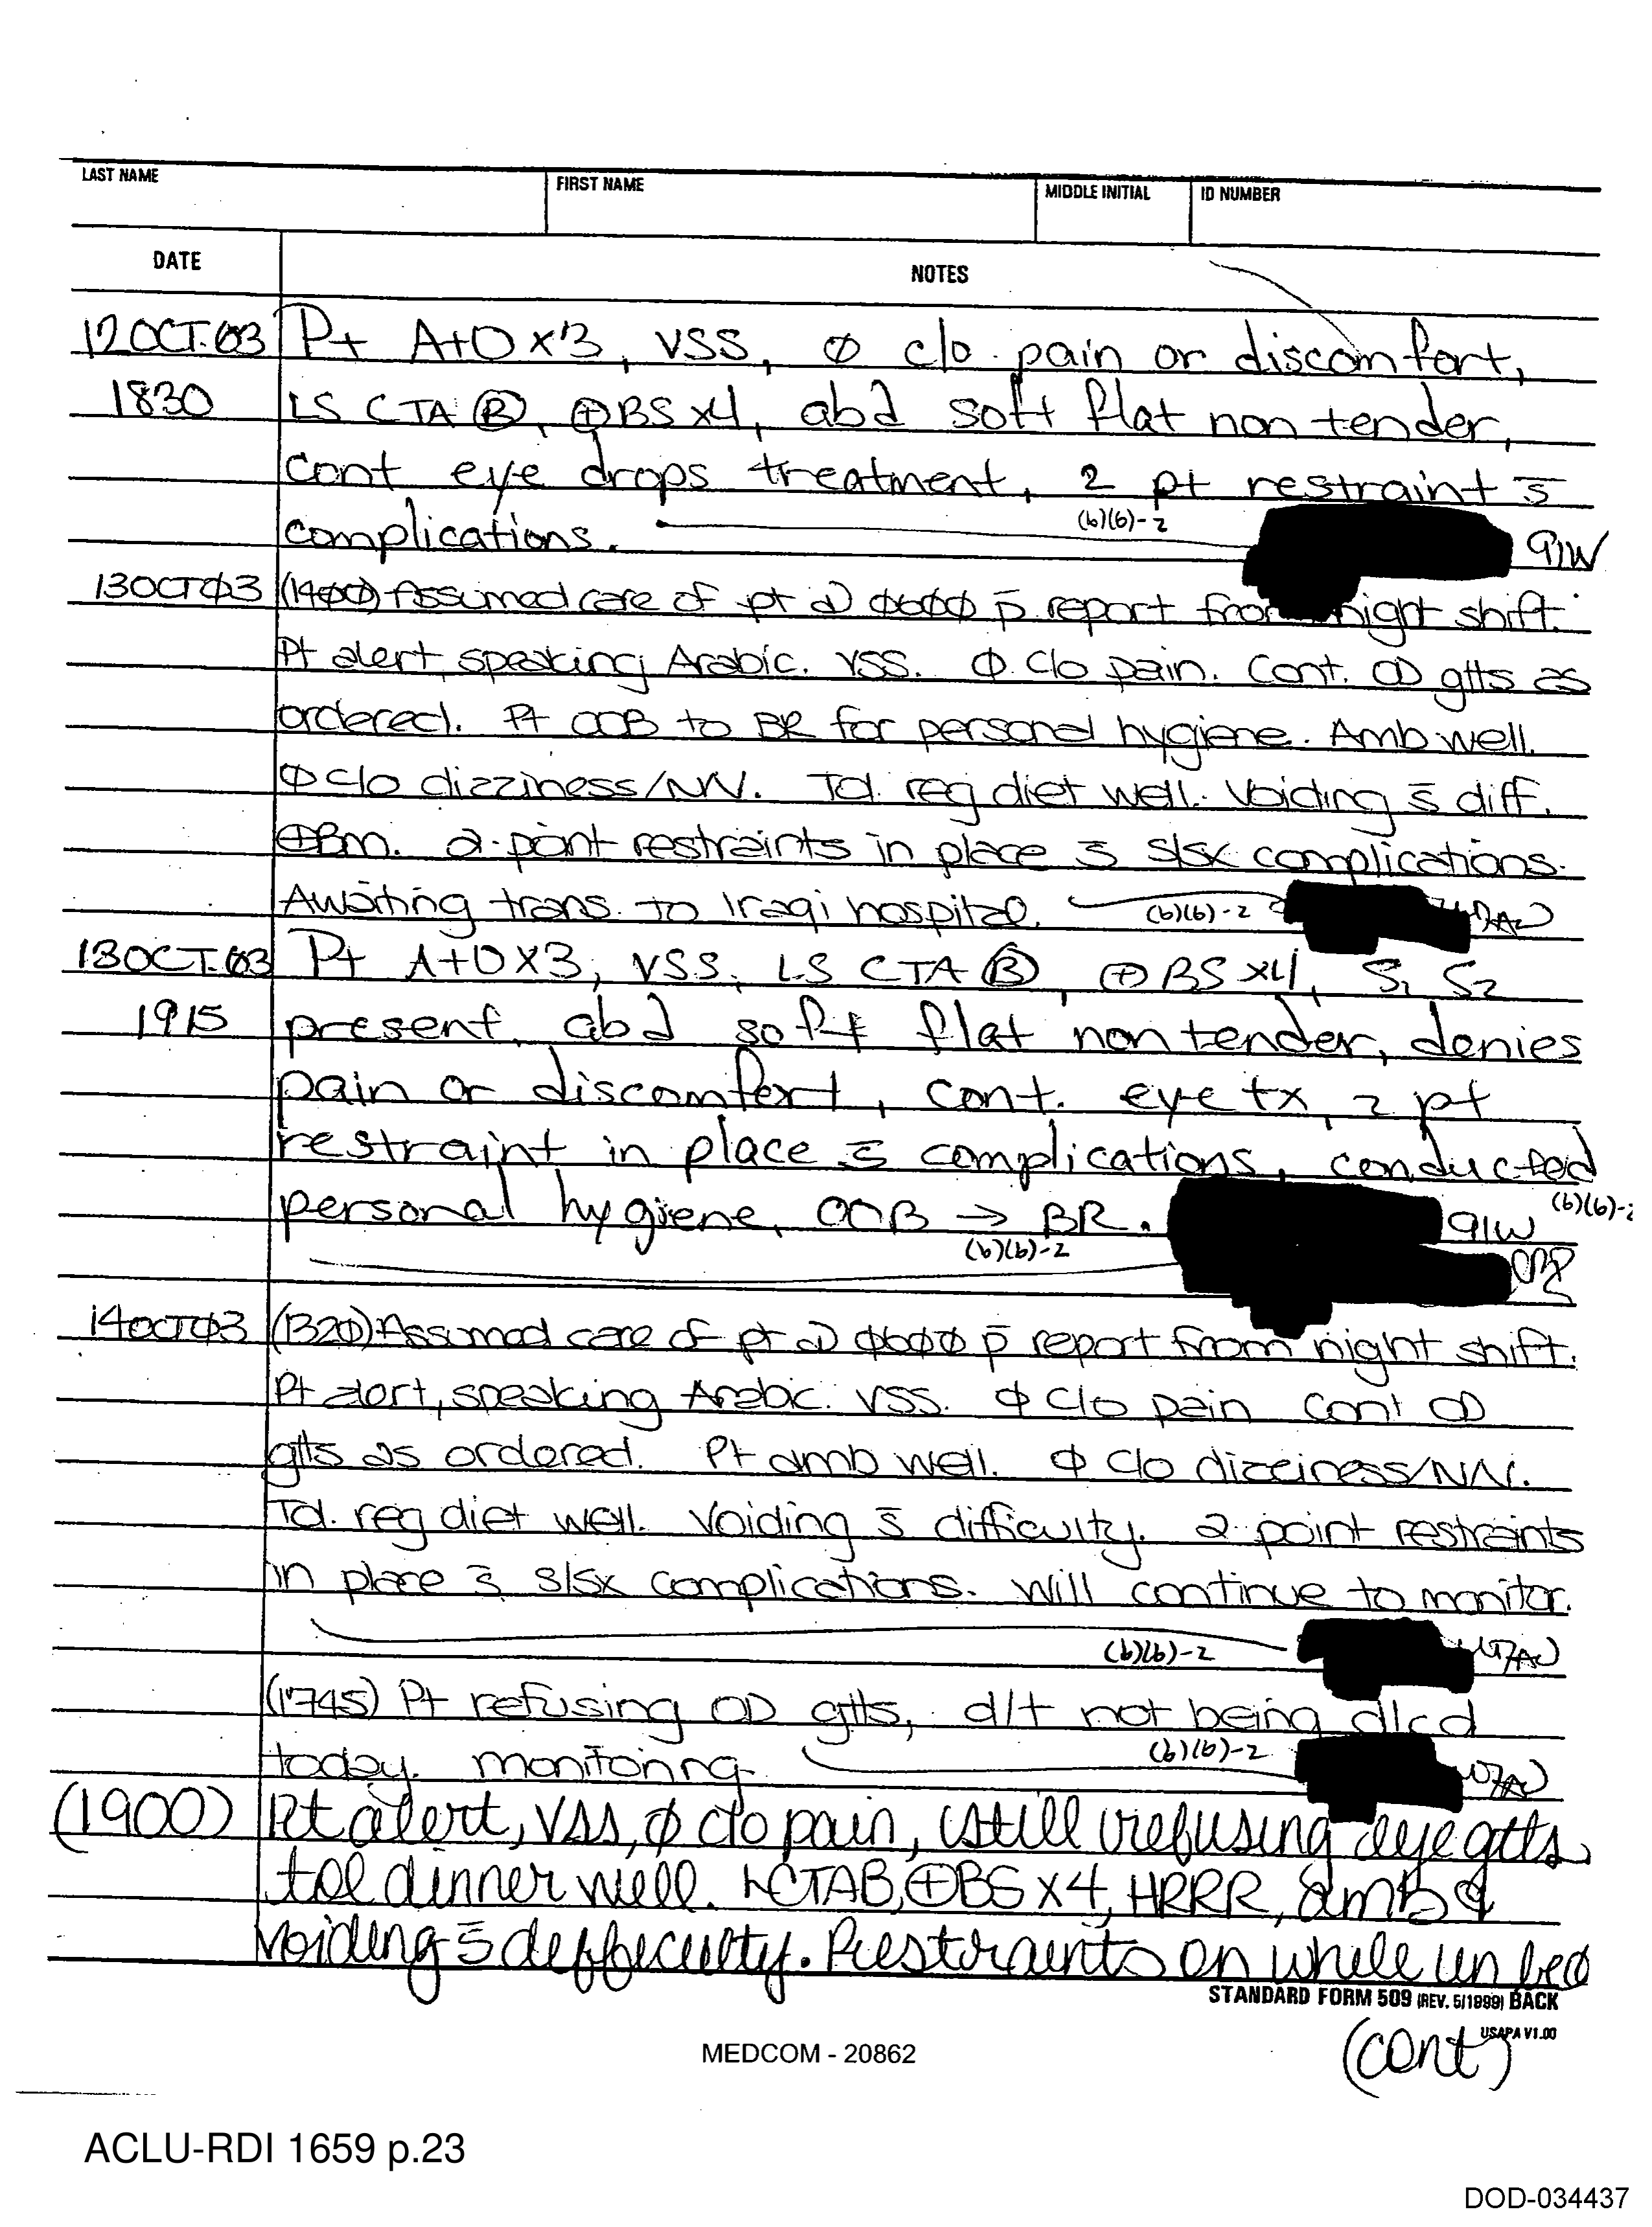 LAST NAME FIRST NAME MIDDLE INITIAL ID NUMBER
DATE NOTES
12 OCT. 03 Pt A+O x 3, VSS, ∅ c/o pain or discomfort,
1830 LS CTA Ⓑ, ⊕ BS x4, abd soft flat non tender,
cont eye drops treatment, 2 pt restraint s̄
complications. (b)(6)-2 91W
13OCT03 (1400) Assumed care of pt @ 0600 p̄ report from night shift.
Pt alert, speaking Arabic. VSS. ∅ c/o pain. Cont. OD gtts as
ordered. Pt OOB to BR for personal hygiene. Amb well.
∅ c/o dizziness/N/V. Tol. reg diet well. Voiding s̄ diff.
⊕Bm. 2-point restraints in place s̄ s/sx complications.
Awaiting trans. to Iraqi hospital. (b)(6)-2
13OCT.03 Pt A+O x3, VSS, LS CTA Ⓑ, ⊕ BS x4, S1 S2
1915 present, abd soft flat non tender, denies
pain or discomfort, cont. eye tx, 2 pt
restraint in place s̄ complications, conducted
personal hygiene, OOB → BR. 91W (b)(6)-2
(b)(6)-2
14OCT03 (1320) Assumed care of pt @ 0600 p̄ report from night shift.
Pt alert, speaking Arabic. VSS. ∅ c/o pain cont OD
gtts as ordered. Pt amb well. ∅ c/o dizziness/N/V.
Tol. reg diet well. Voiding s̄ difficulty. 2-point restraints
in place s̄ s/sx complications. Will continue to monitor.
(b)(6)-2
(1745) Pt refusing OD gtts, d/t not being d/cd
today. monitoring (b)(6)-2
(1900) Pt alert, VSS, ∅ c/o pain, still refusing eye gtts.
tol dinner well. LCTAB, ⊕BS x 4, HRRR, amb &
voiding s̄ difficulty. Restraints on while in bed
STANDARD FORM 509 (REV. 5/1999) BACK
USAPA V1.00
(cont)
MEDCOM - 20862
ACLU-RDI 1659 p.23
DOD-034437